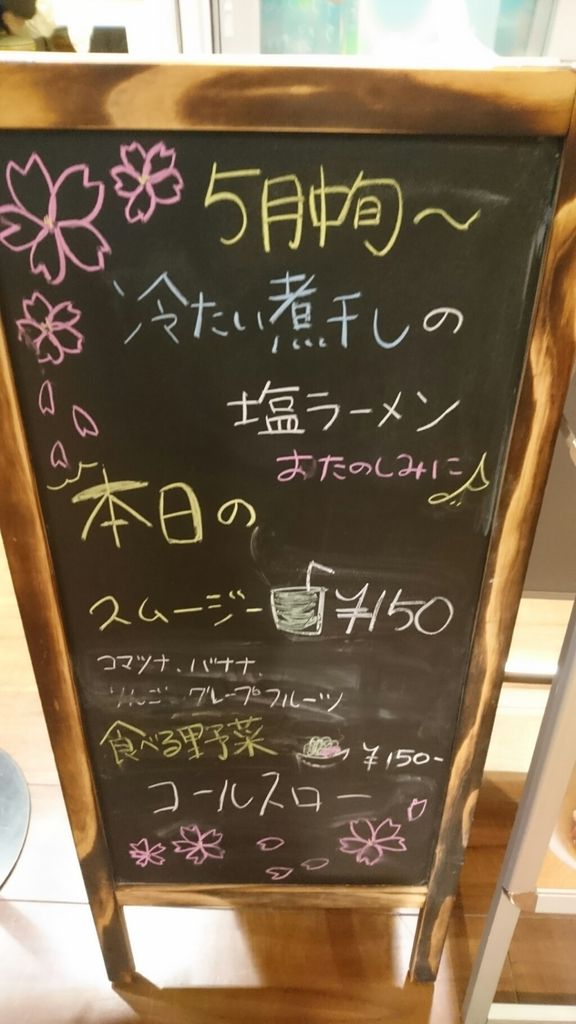 5月中旬～
冷たい煮干しの
塩ラーメン
おたのしみに♪
本日の
スムージー ¥150
コマツナ、バナナ、
りんご、グレープフルーツ
食べる野菜 ¥150-
コールスロー